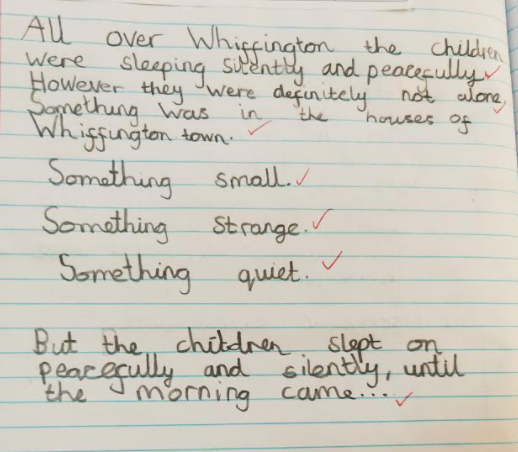 All over Whiffington the children
were sleeping silently and peacefully
However they were definitely not alone,
Something was in the houses of
Whiffington town.
Something small.
Something strange.
Something quiet.
But the children slept on
peacefully and silently, until
the morning came...